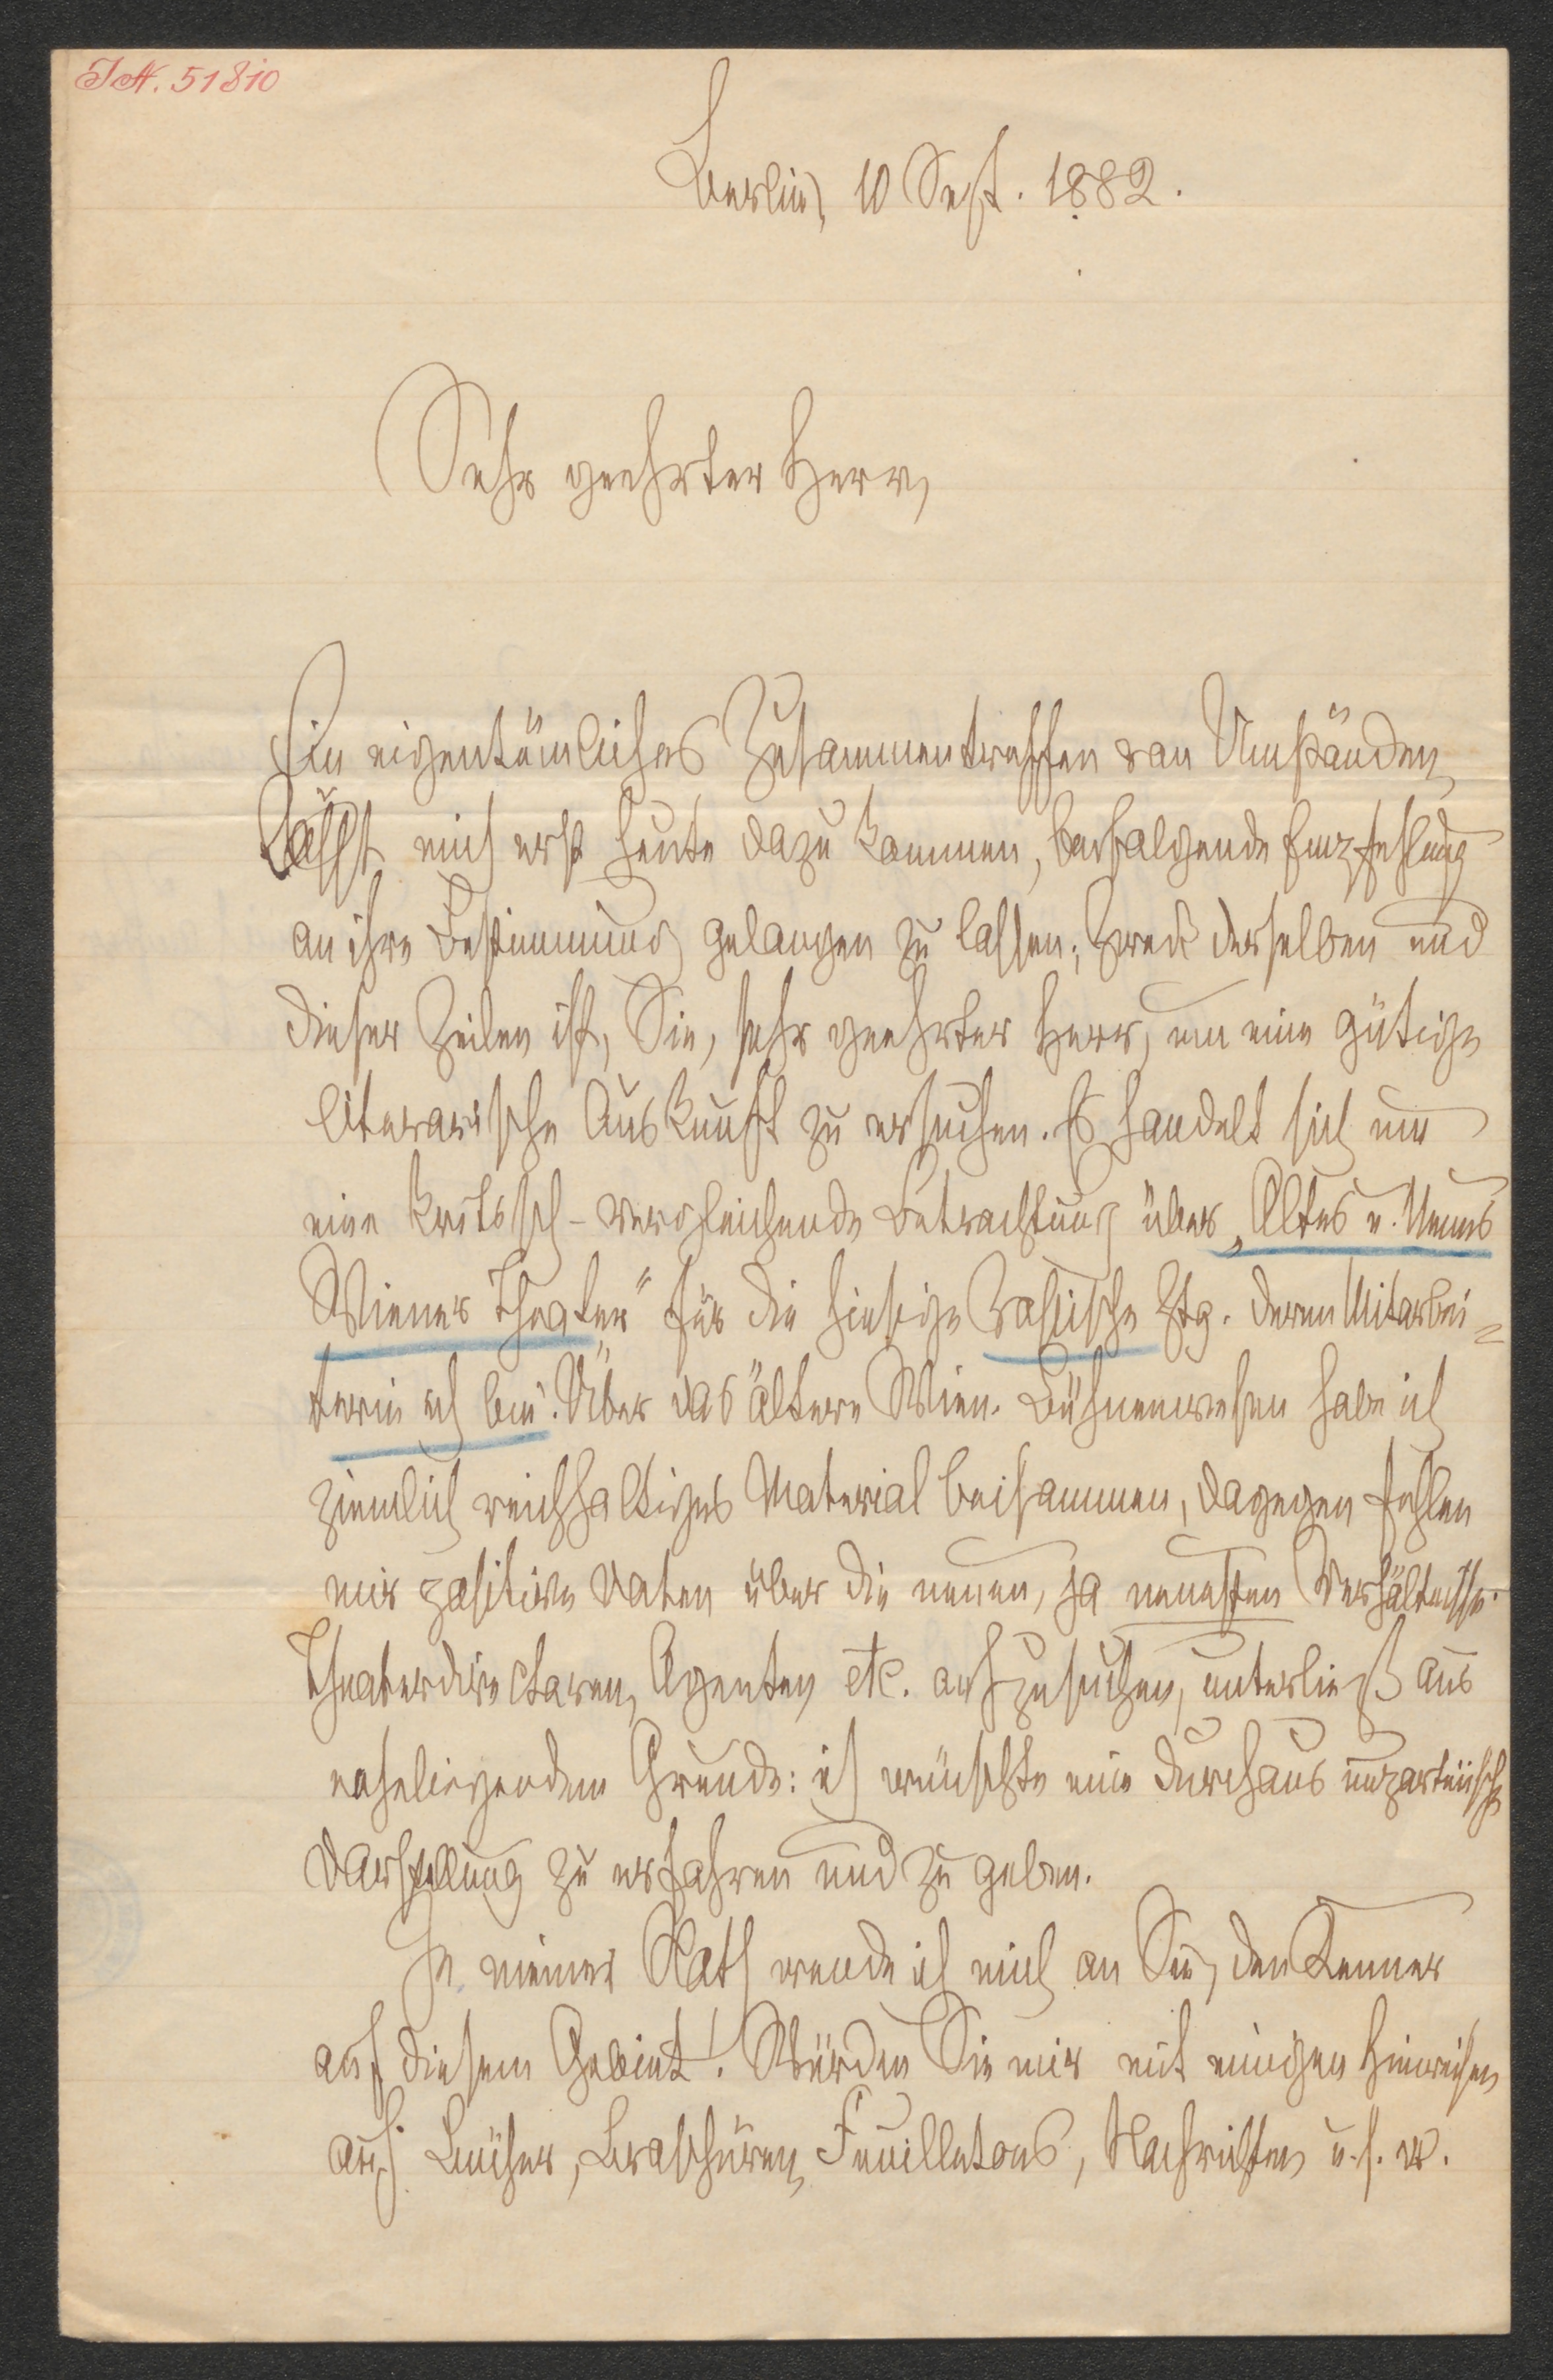 I.N. 51810
Berlin, 10 Sept. 1882.
Sehr geehrter Herr,
Ein eigentümliches Zusammentreffen von Umständen
läßt mich erst heute dazu kommen, beifolgende Empfehlung
an ihre Bestimmung gelangen zu lassen; Zweck derselben und
dieser Zeilen ist, Sie, sehr geehrter Herr, um eine gütige
literarische Auskunft zu ersuchen. Es handelt sich um
eine kritisch-vergleichende Betrachtung über „Altes u. Neues
Wiener Theater“ für die hiesige Vossische Ztg. deren Mitarbei=
terin ich bin. Über das ältere Wien. Bühnenwesen habe ich
ziemlich reichhaltiges Material beisammen, dagegen fehlen
mir positive Daten über die neuen, ja neuesten Verhältnisse.
Theaterdirectoren, Agenten etc. aufzusuchen, unterließ aus
naheliegendem Grunde: ich wünschte eine durchaus unparteiische
Darstellung zu erfahren und zu geben.
In meiner Noth wende ich mich an Sie, den Kenner
auf diesem Gebiet! Würden Sie mir mit einigen Hinweisen
auf Bücher, Broschüren, Feuilletons, Nachrichten u. s. w.